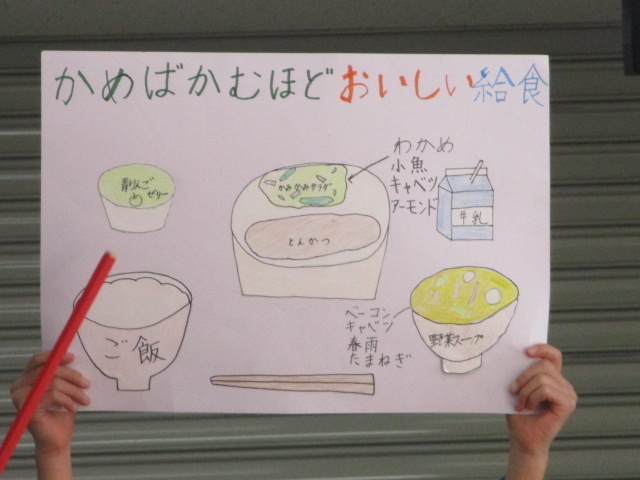 かめばかむほどおいしい給食
青りんご
ゼリー
かみかみサラダ
わかめ
小魚
キャベツ
アーモンド
牛乳
とんかつ
ご飯
ベーコン
キャベツ
春雨
たまねぎ
野菜スープ